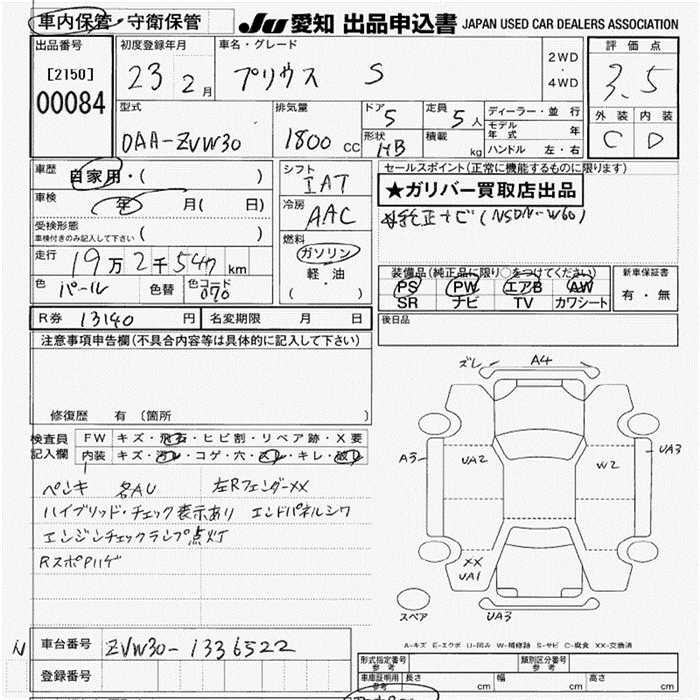 車内保管・守衛保管 JU 愛知 出品申込書 JAPAN USED CAR DEALERS ASSOCIATION
出品番号 初度登録年月 車名・グレード 評価点
[2150] 23 2月 プリウス S 2WD・4WD 3.5
00084
型式 排気量 ドア 5 定員 5人 ディーラー・並行 外装 内装
DAA-ZVW30 1800cc 形状 HB 積載 kg モデル年式 年 C D
ハンドル 左・右
車歴 自家用・( ) シフト セールスポイント(正常に機能するものに限ります)
IAT ★ガリバー買取店出品
車検 年 月( 日) 冷房 純正ナビ(NSDN-W60)
受検形態 AAC
車検付きのみ記入して下さい ( )
走行 19万2千547km 燃料 ガソリン
軽油
( ・ )
装備品(純正品に限り○をつけてください) 新車保証書
色 パール 色替 色コード 070 PS PW エアB AW 有・無
SR ナビ TV カワシート
R券 13140 円 名変期限 月 日 後日品
注意事項申告欄(不具合内容等は具体的に記入して下さい)
修復歴 有 (箇所 )
検査員記入欄 FW キズ・飛石・ヒビ割・リペア跡・X要
内装 キズ・汚レ・コゲ・穴・スレ・キレ・破レ
ペンキ 名AU 左RフェンダーXX
ハイブリッド・チェック表示あり エンドパネルシワ
エンジンチェックランプ点灯
RスポPハゲ
ズレ A4
A3 UA2 W2 UA3
XX
UA1
スペア UA3
A-キズ E-エクボ U-凹み W-補修跡 S-サビ C-腐食 XX-交換済
車台番号 ZVW30-1336522
登録番号
形式指定番号 参考 類別区分番号 参考
車庫証明用 参考 長さ cm 幅 cm 高さ cm